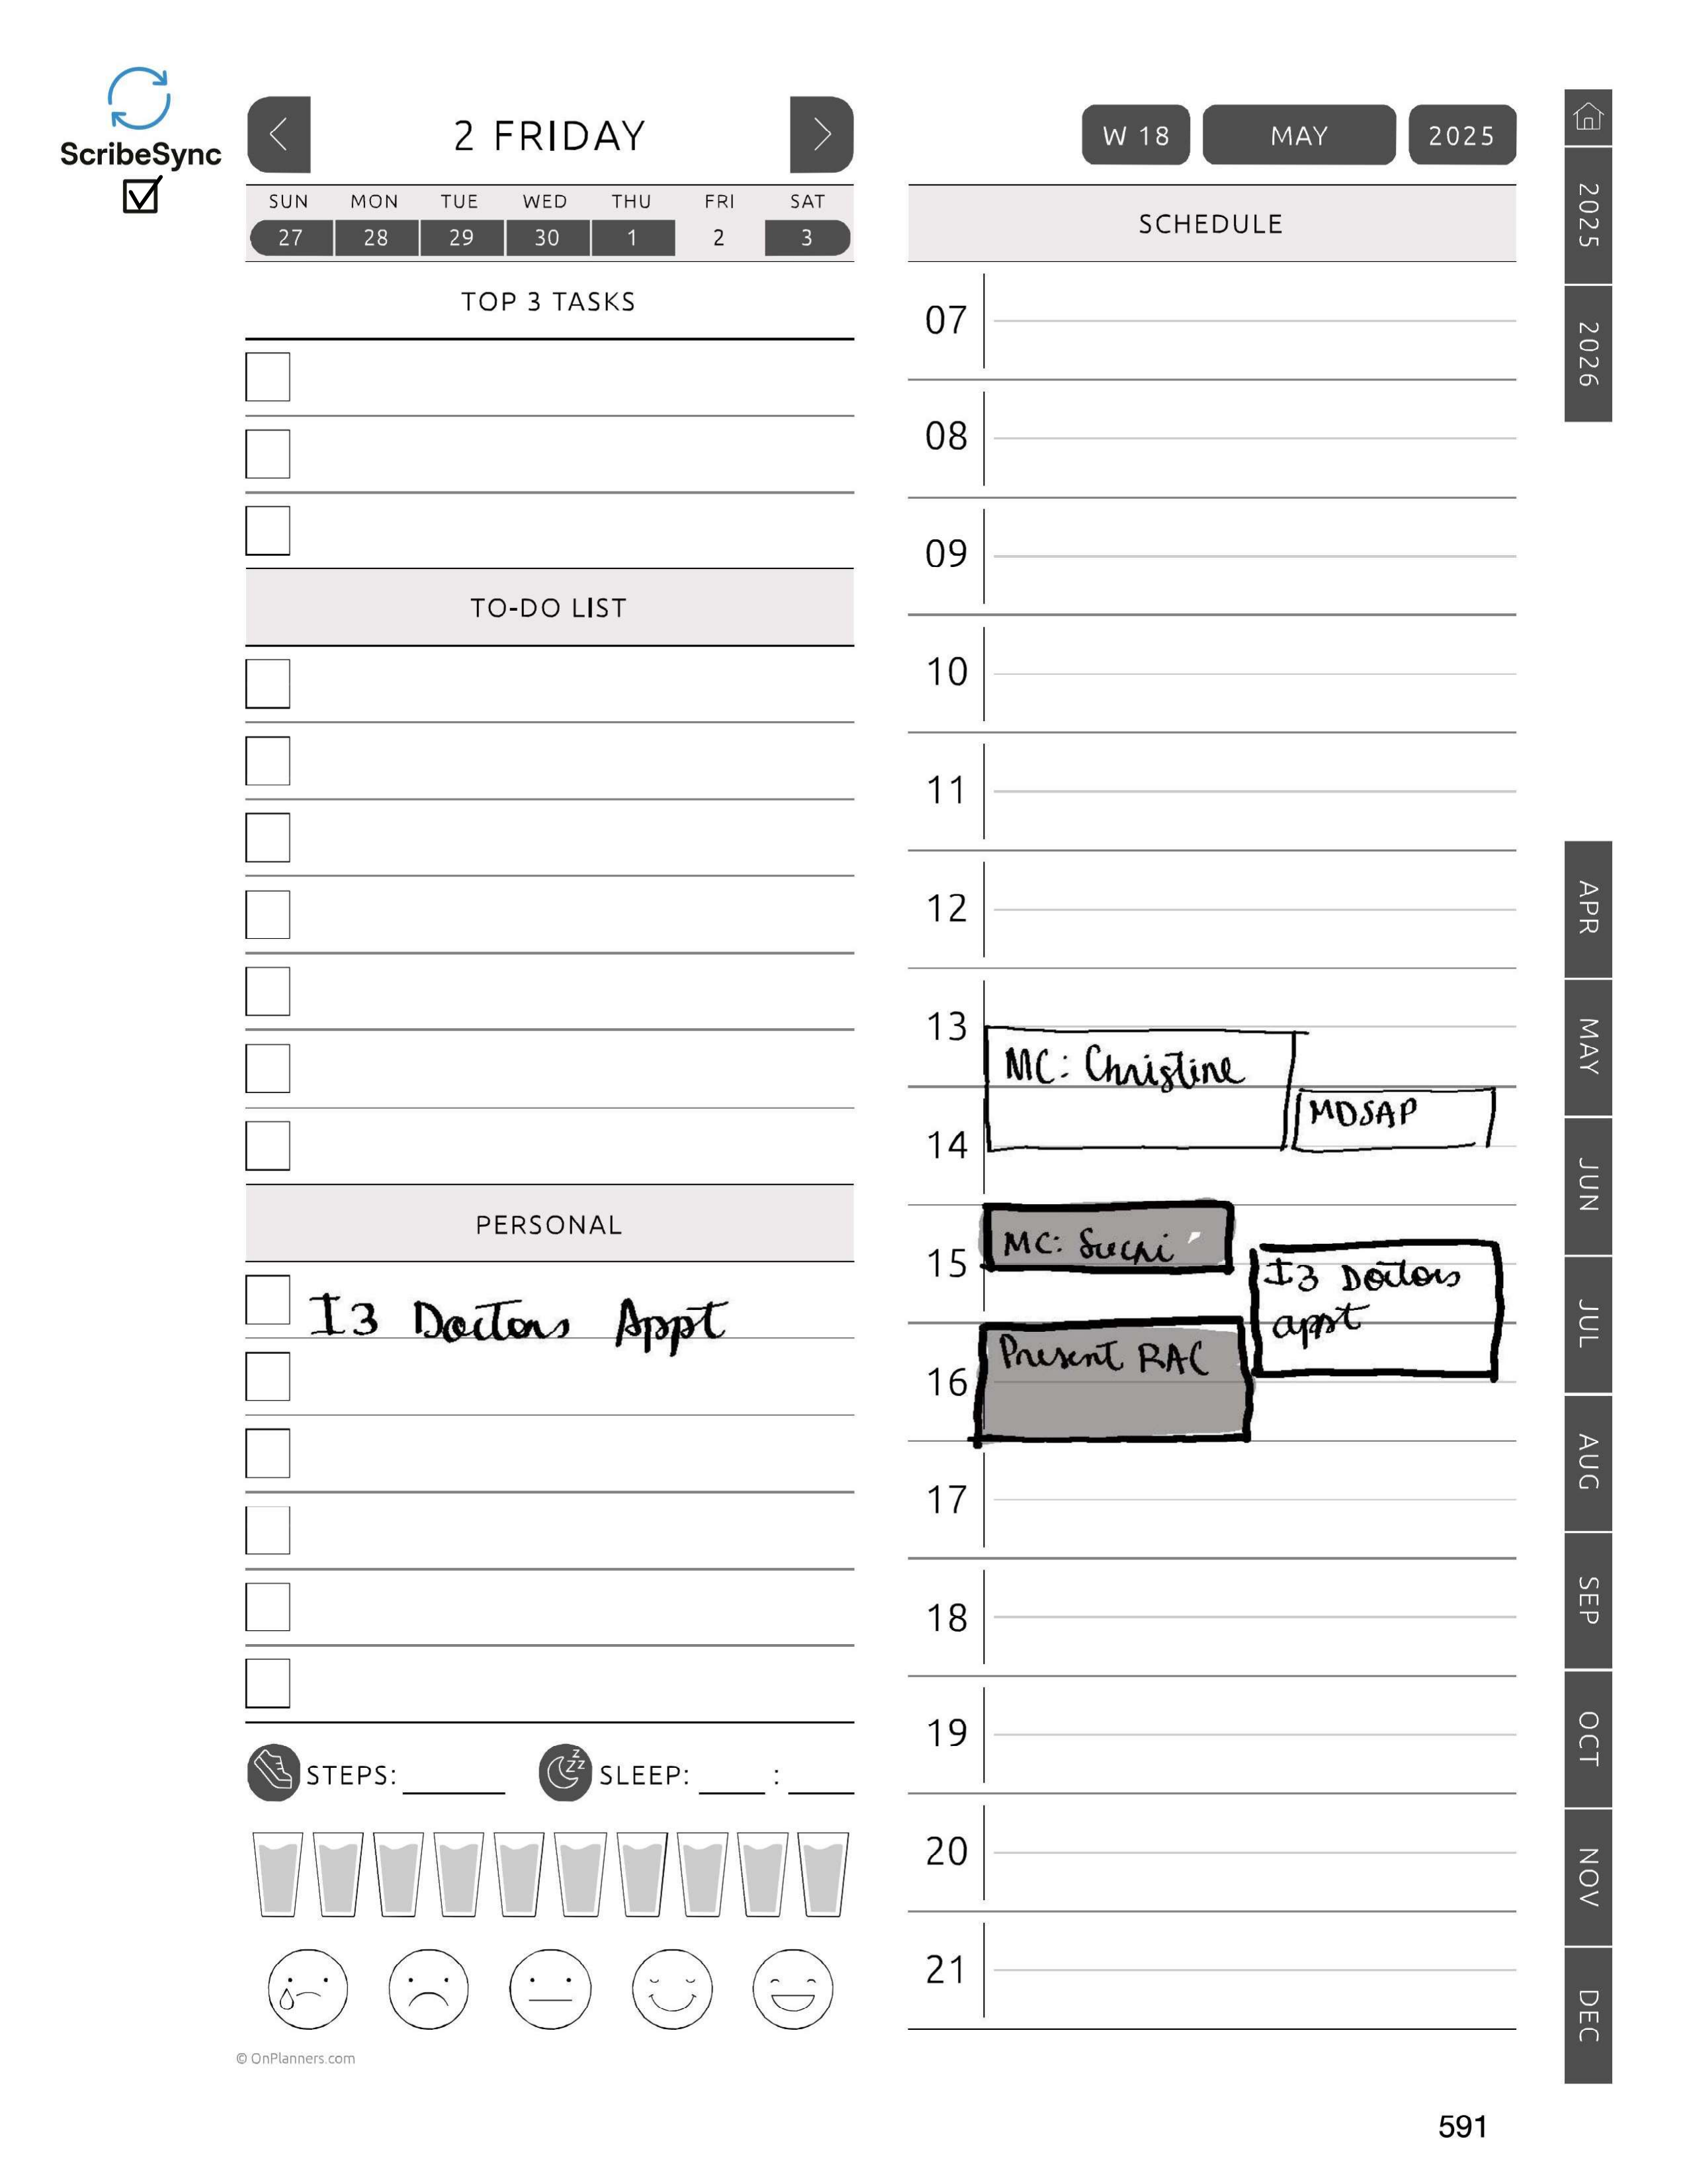 ScribeSync
2 FRIDAY
SUN MON TUE WED THU FRI SAT
27 28 29 30 1 2 3
TOP 3 TASKS
TO-DO LIST
PERSONAL
I3 Doctors Appt
STEPS:
SLEEP: :
© OnPlanners.com
W 18 MAY 2025
SCHEDULE
07
08
09
10
11
12
13
MC: Christine
MDSAP
14
MC: Suchi
15
I3 Doctors
appt
Present RAC
16
17
18
19
20
21
2025
2026
APR
MAY
JUN
JUL
AUG
SEP
OCT
NOV
DEC
591